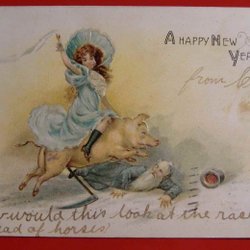 A HAPPY NEW
YEA
from
would this look at the rac
ead of horses